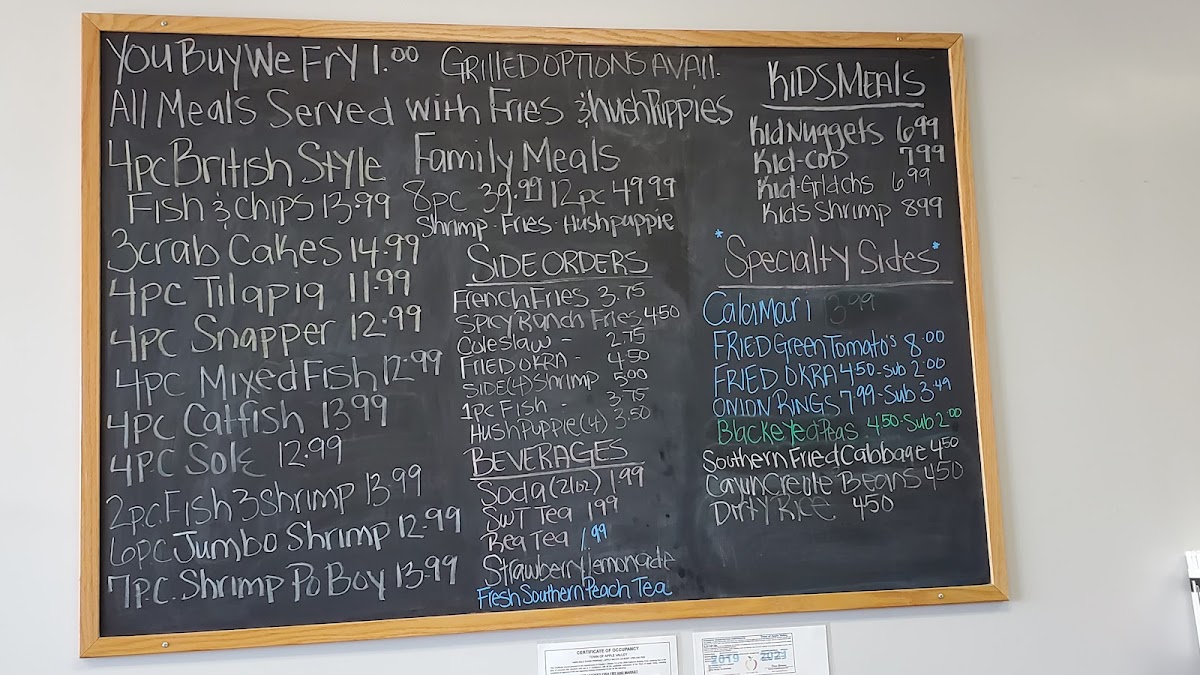 You Buy We Fry 1.00
Grilled Options Avail.
All Meals Served with Fries & Hush Puppies
4pc British Style
Fish & Chips 13.99
3 crab Cakes 14.99
4pc Tilapia 11.99
4pc Snapper 12.99
4pc Mixed Fish 12.99
4pc Catfish 13.99
4pc Sole 12.99
2pc. Fish 3 shrimp 13.99
6pc Jumbo Shrimp 12.99
7pc. Shrimp Po Boy 13.99
Family Meals
8pc 39.99 12pc 49.99
Shrimp - Fries - Hushpuppie
SIDE ORDERS
French Fries 3.75
Spicy Ranch Fries 4.50
Coleslaw - 2.75
FRIED OKRA - 4.50
SIDE (4) Shrimp 5.00
1pc Fish - 3.75
HushPuppie (4) 3.50
BEVERAGES
Soda (21oz) 1.99
SWT Tea 1.99
Reg Tea 1.99
Strawberry lemonade
Fresh Southern Peach Tea
KIDS MEALS
Kid Nuggets 6.99
Kid-COD 7.99
Kid-Grldchs 6.99
Kids Shrimp 8.99
*Specialty Sides*
Calamari 13.99
FRIED Green Tomato's 8.00
FRIED OKRA 4.50 - Sub 2.00
ONION RINGS 7.99 - Sub 3.49
Blackeyed Peas 4.50 - Sub 2.00
Southern Fried Cabbage 4.50
Cajun Creole Beans 4.50
Dirty Rice 4.50
CERTIFICATE OF OCCUPANCY
TOWN OF APPLE VALLEY
2019 2023